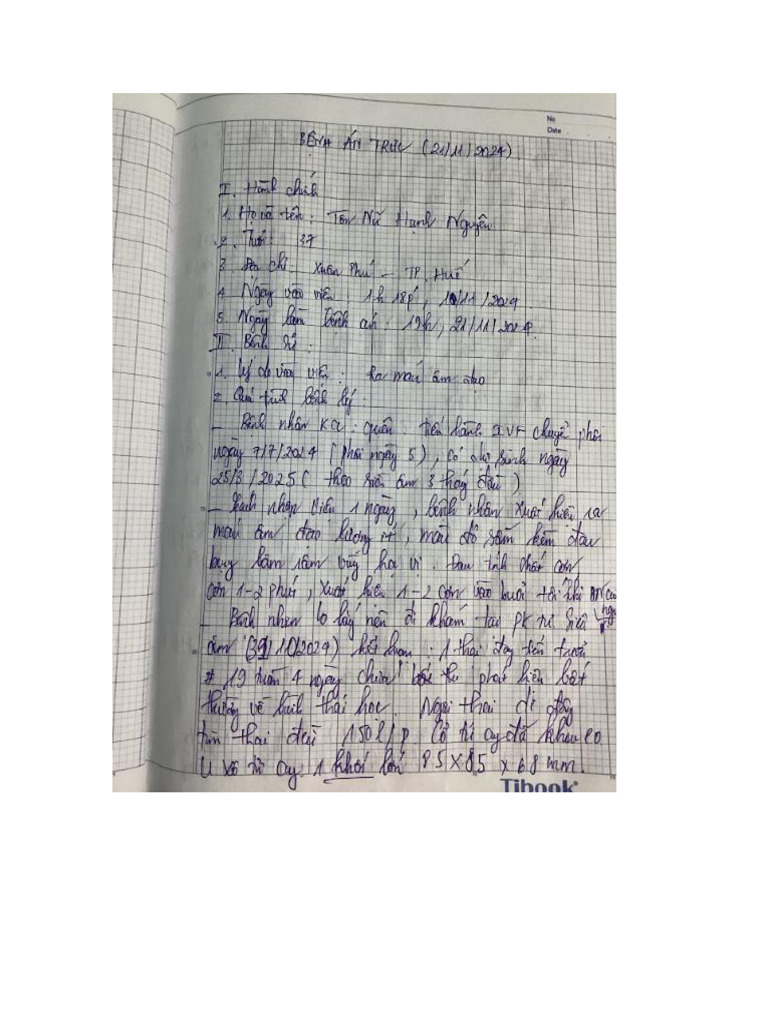 No
Date
BỆNH ÁN TRỰC (21/11/2024)
I. Hành chính
1. Họ và tên: Tôn Nữ Hạnh Nguyên
2. Tuổi: 37
3. Địa chỉ Xuân Phú - TP. Huế
4. Ngày vào viện 1h 18p, /11/2024
5. Ngày làm bệnh án: 19h, 21/11/2024
II. Bệnh sử:
1. Lý do vào viện: Ra máu âm đạo
2. Quá trình bệnh lý:
- Bệnh nhân tiến hành IVF chuyển phôi
ngày 7/7/2024 (phôi ngày 5), có dự sinh ngày
25/3/2025 (theo siêu âm 3 tháng đầu)
- nhập viện 1 ngày, bệnh nhân xuất hiện ra
máu âm đạo lượng ít, máu đỏ sẫm kèm đau
bụng lâm râm vùng hạ vị. Đau tính chất cơn
cơn 1-2 phút, xuất hiện 1-2 cơn vào buổi tối khi
- Bệnh nhân lo lắng nên đi khám tại PK tư siêu
âm (/10/2024) kết luận: 1 thai đang tiến triển
# 19 tuần 4 ngày chưa phát hiện bất
thường về hình thái học. Ngôi thai di động
tim thai đều 150 l/p. Cổ tử cung đã khâu eo
U xơ tử cung 1 khối lớn 85 x 85 x 68 mm.
Tibook